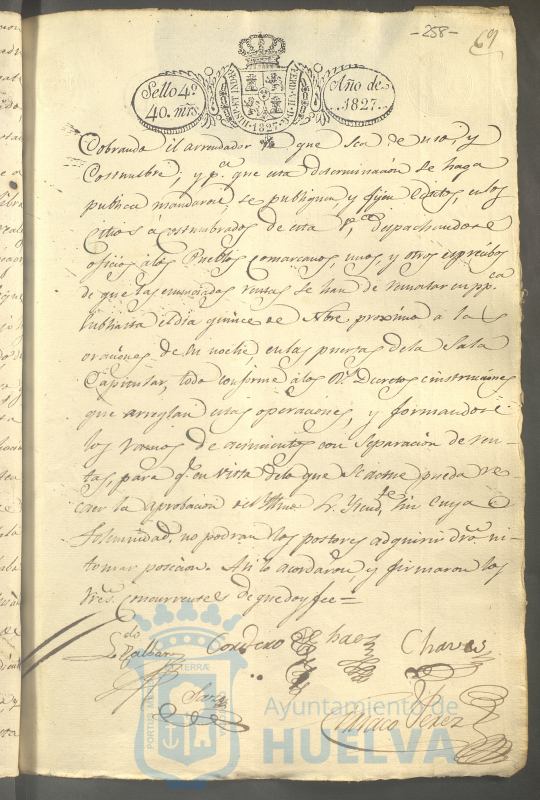 -258-
69
Sello 4º
40. mrs
HISP. ET IND. R.
1827
Año de
1827.
Cobrando el arrendador que sea de uso, y
Costumbre, y pª que esta determinacion se haga
publica mandaron se publiquen y fijen Edictos, en los
Citios acostumbrados de esta Vª despachandose
oficios alos Pueblos Comarcanos, unos, y otros expresibos
de que las enunciadas rentas se han de rematar en ppca
Subhasta el dia quince de Nbre proximo a las
oraciones de su noche en las puertas dela Sala
Capitular, todo conforme alos Rs Decretos e instrucciones
que arreglan estas operaciones, y formandose
los ramos de acimientos con Separacion de ren-
tas, para q.e en vista delo que se actue pueda re
caer la aprobacion del Yllmo Sr. Yntend.te sin cuya
Solemnidad, no podran los postores adquirir dro ni
tomar posecion. Asi lo acordaron, y firmaron los
Sres. Concurrentes de que doy fee=
Ldo
Cordero
Chaves
Perez
PORTUS MARIS
TERRAE
Ayuntamiento de
HUELVA